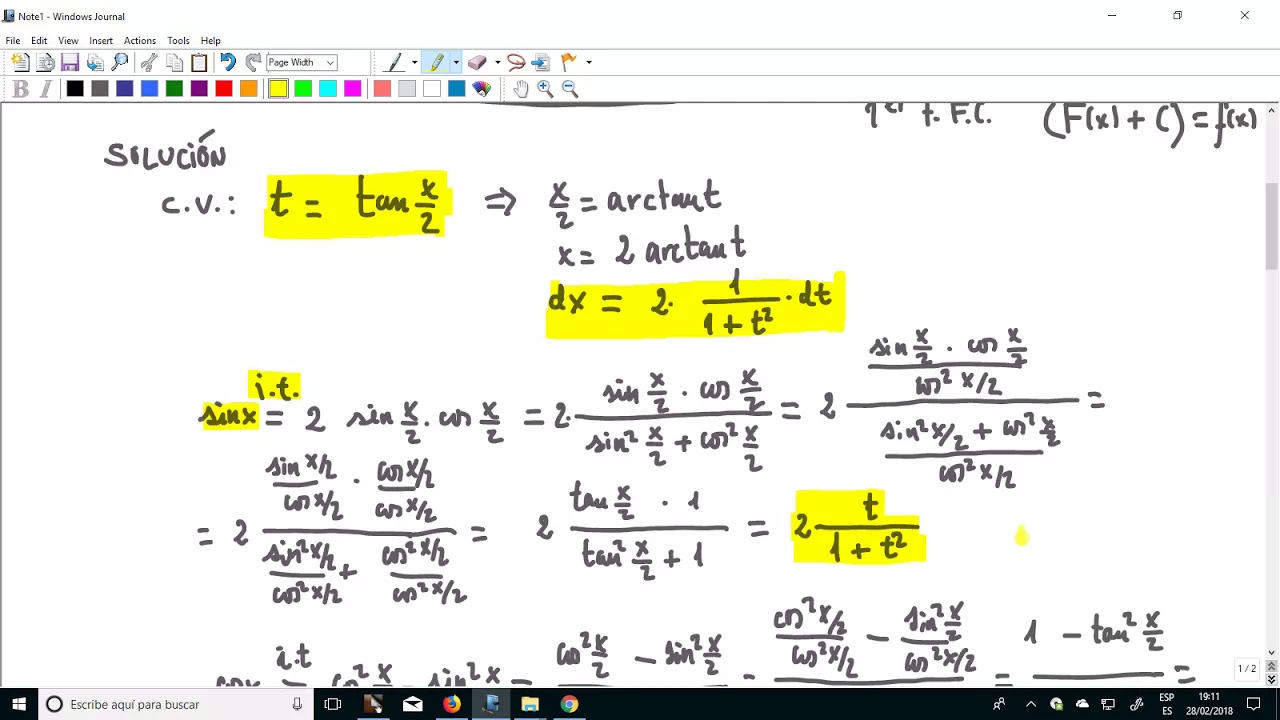 Note1 - Windows Journal
File Edit View Insert Actions Tools Help
Page Width
B I
1er t. F.C. (F(x) + C) = f(x)
SOLUCIÓN
c.v.: t = tan x/2 ⇒ x/2 = arctan t
x = 2 arctan t
dx = 2 · 1/(1 + t²) · dt
i.t.
sin x = 2 sin x/2 · cos x/2 = 2 · (sin x/2 · cos x/2)/(sin² x/2 + cos² x/2) = 2 ((sin x/2 · cos x/2)/(cos² x/2))/((sin² x/2 + cos² x/2)/(cos² x/2)) =
= 2 ((sin x/2)/(cos x/2) · (cos x/2)/(cos x/2))/((sin² x/2)/(cos² x/2) + (cos² x/2)/(cos² x/2)) = 2 (tan x/2 · 1)/(tan² x/2 + 1) = 2 t/(1 + t²)
i.t
cos x = cos² x/2 - sin² x = cos² x/2 - sin² x/2 = (cos² x/2)/(cos² x/2) - (sin² x/2)/(cos² x/2) = 1 - tan² x/2 =
1 / 2
Escribe aquí para buscar
ESP
ES
19:11
28/02/2018